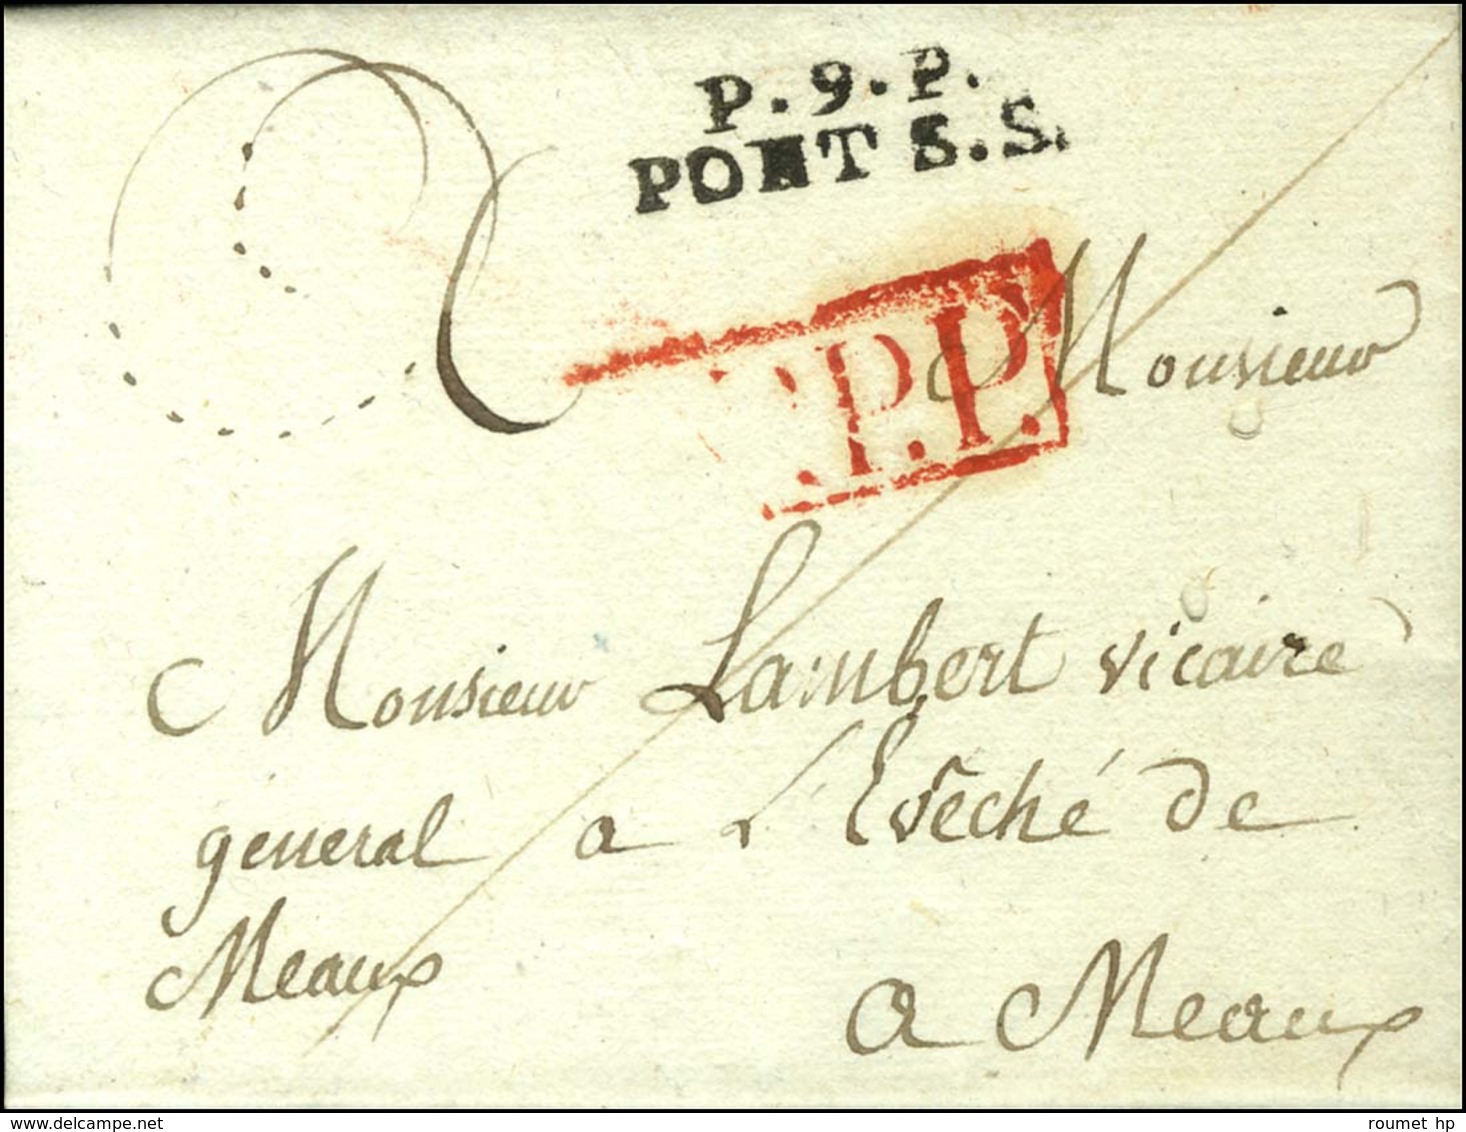 P.9.P.
PONT S.S.
P.P.P.
Monsieur
Monsieur Lambert vicaire
géneral a L'Evêché de
Meaux
a Meaux
roumet hp